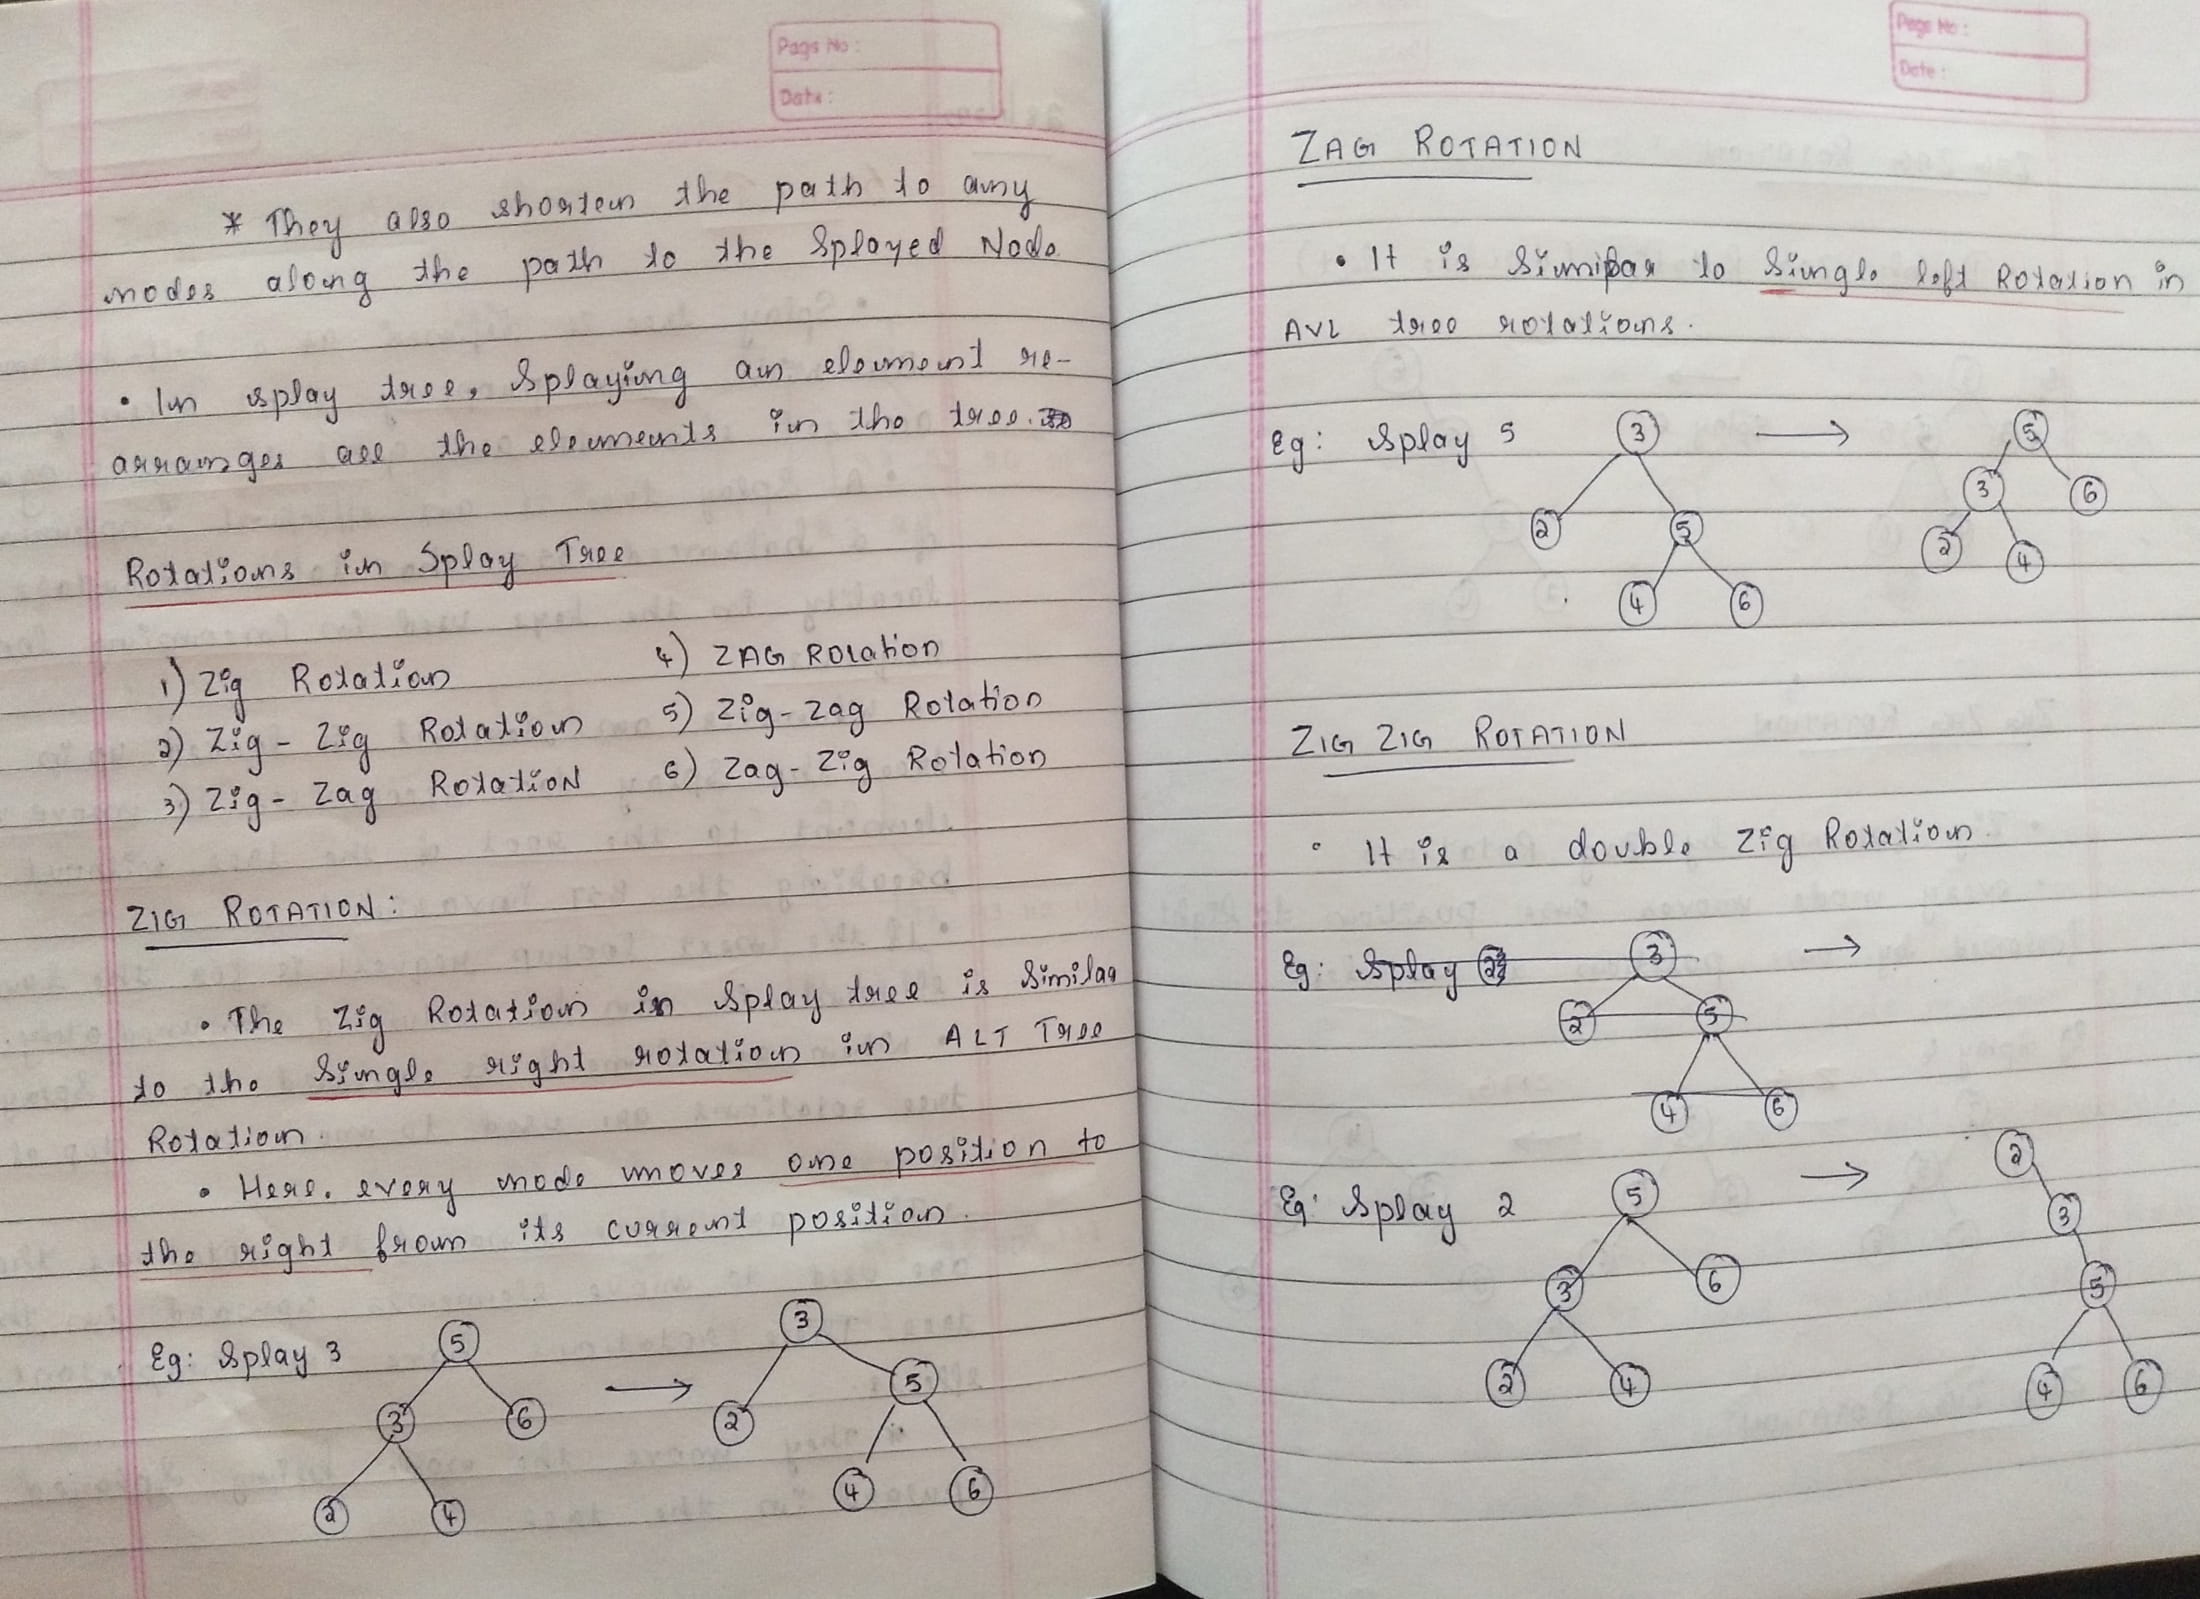 Page No :
Date :
* They also shorten the path to any
nodes along the path to the Splayed Node.
• In splay tree, Splaying an element re-
arranges all the elements in the tree.
Rotations in Splay Tree
1) Zig Rotation
2) Zig - Zig Rotation
3) Zig - Zag Rotation
4) ZAG Rotation
5) Zig - Zag Rotation
6) Zag - Zig Rotation
ZIG ROTATION:
• The Zig Rotation in Splay tree is Similar
to the Single right rotation in ALT Tree
Rotation.
• Here, every node moves one position to
the right from its current position.
Eg: Splay 3
5
3
6
2
4
3
2
5
4
6
Page No :
Date :
ZAG ROTATION
• It is Similar to Single left Rotation in
AVL tree rotations.
Eg: Splay 5
3
2
5
4
6
5
3
6
2
4
ZIG ZIG ROTATION
• It is a double Zig Rotation.
Eg: Splay
3
2
5
4
6
Eg: Splay 2
5
3
6
2
4
2
3
5
4
6